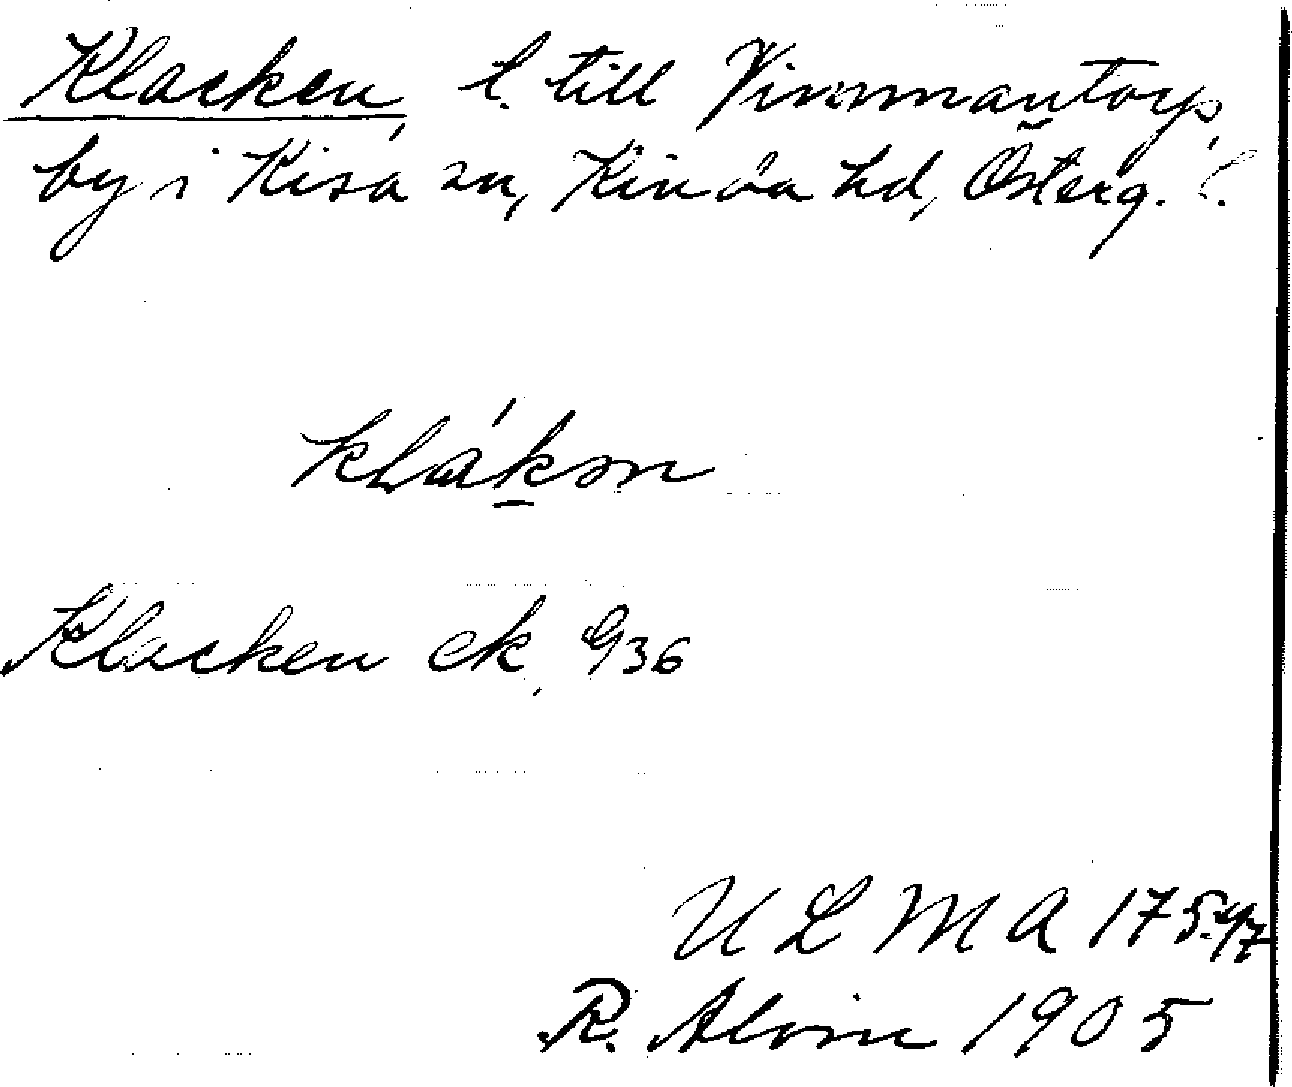 Klacken, l. till Vimmantorp,
by i Kisa sn, Kinda hd, Österg. l.
klákən
Klacken ek. 936
U L M A 175:47
R. Alvin 1905